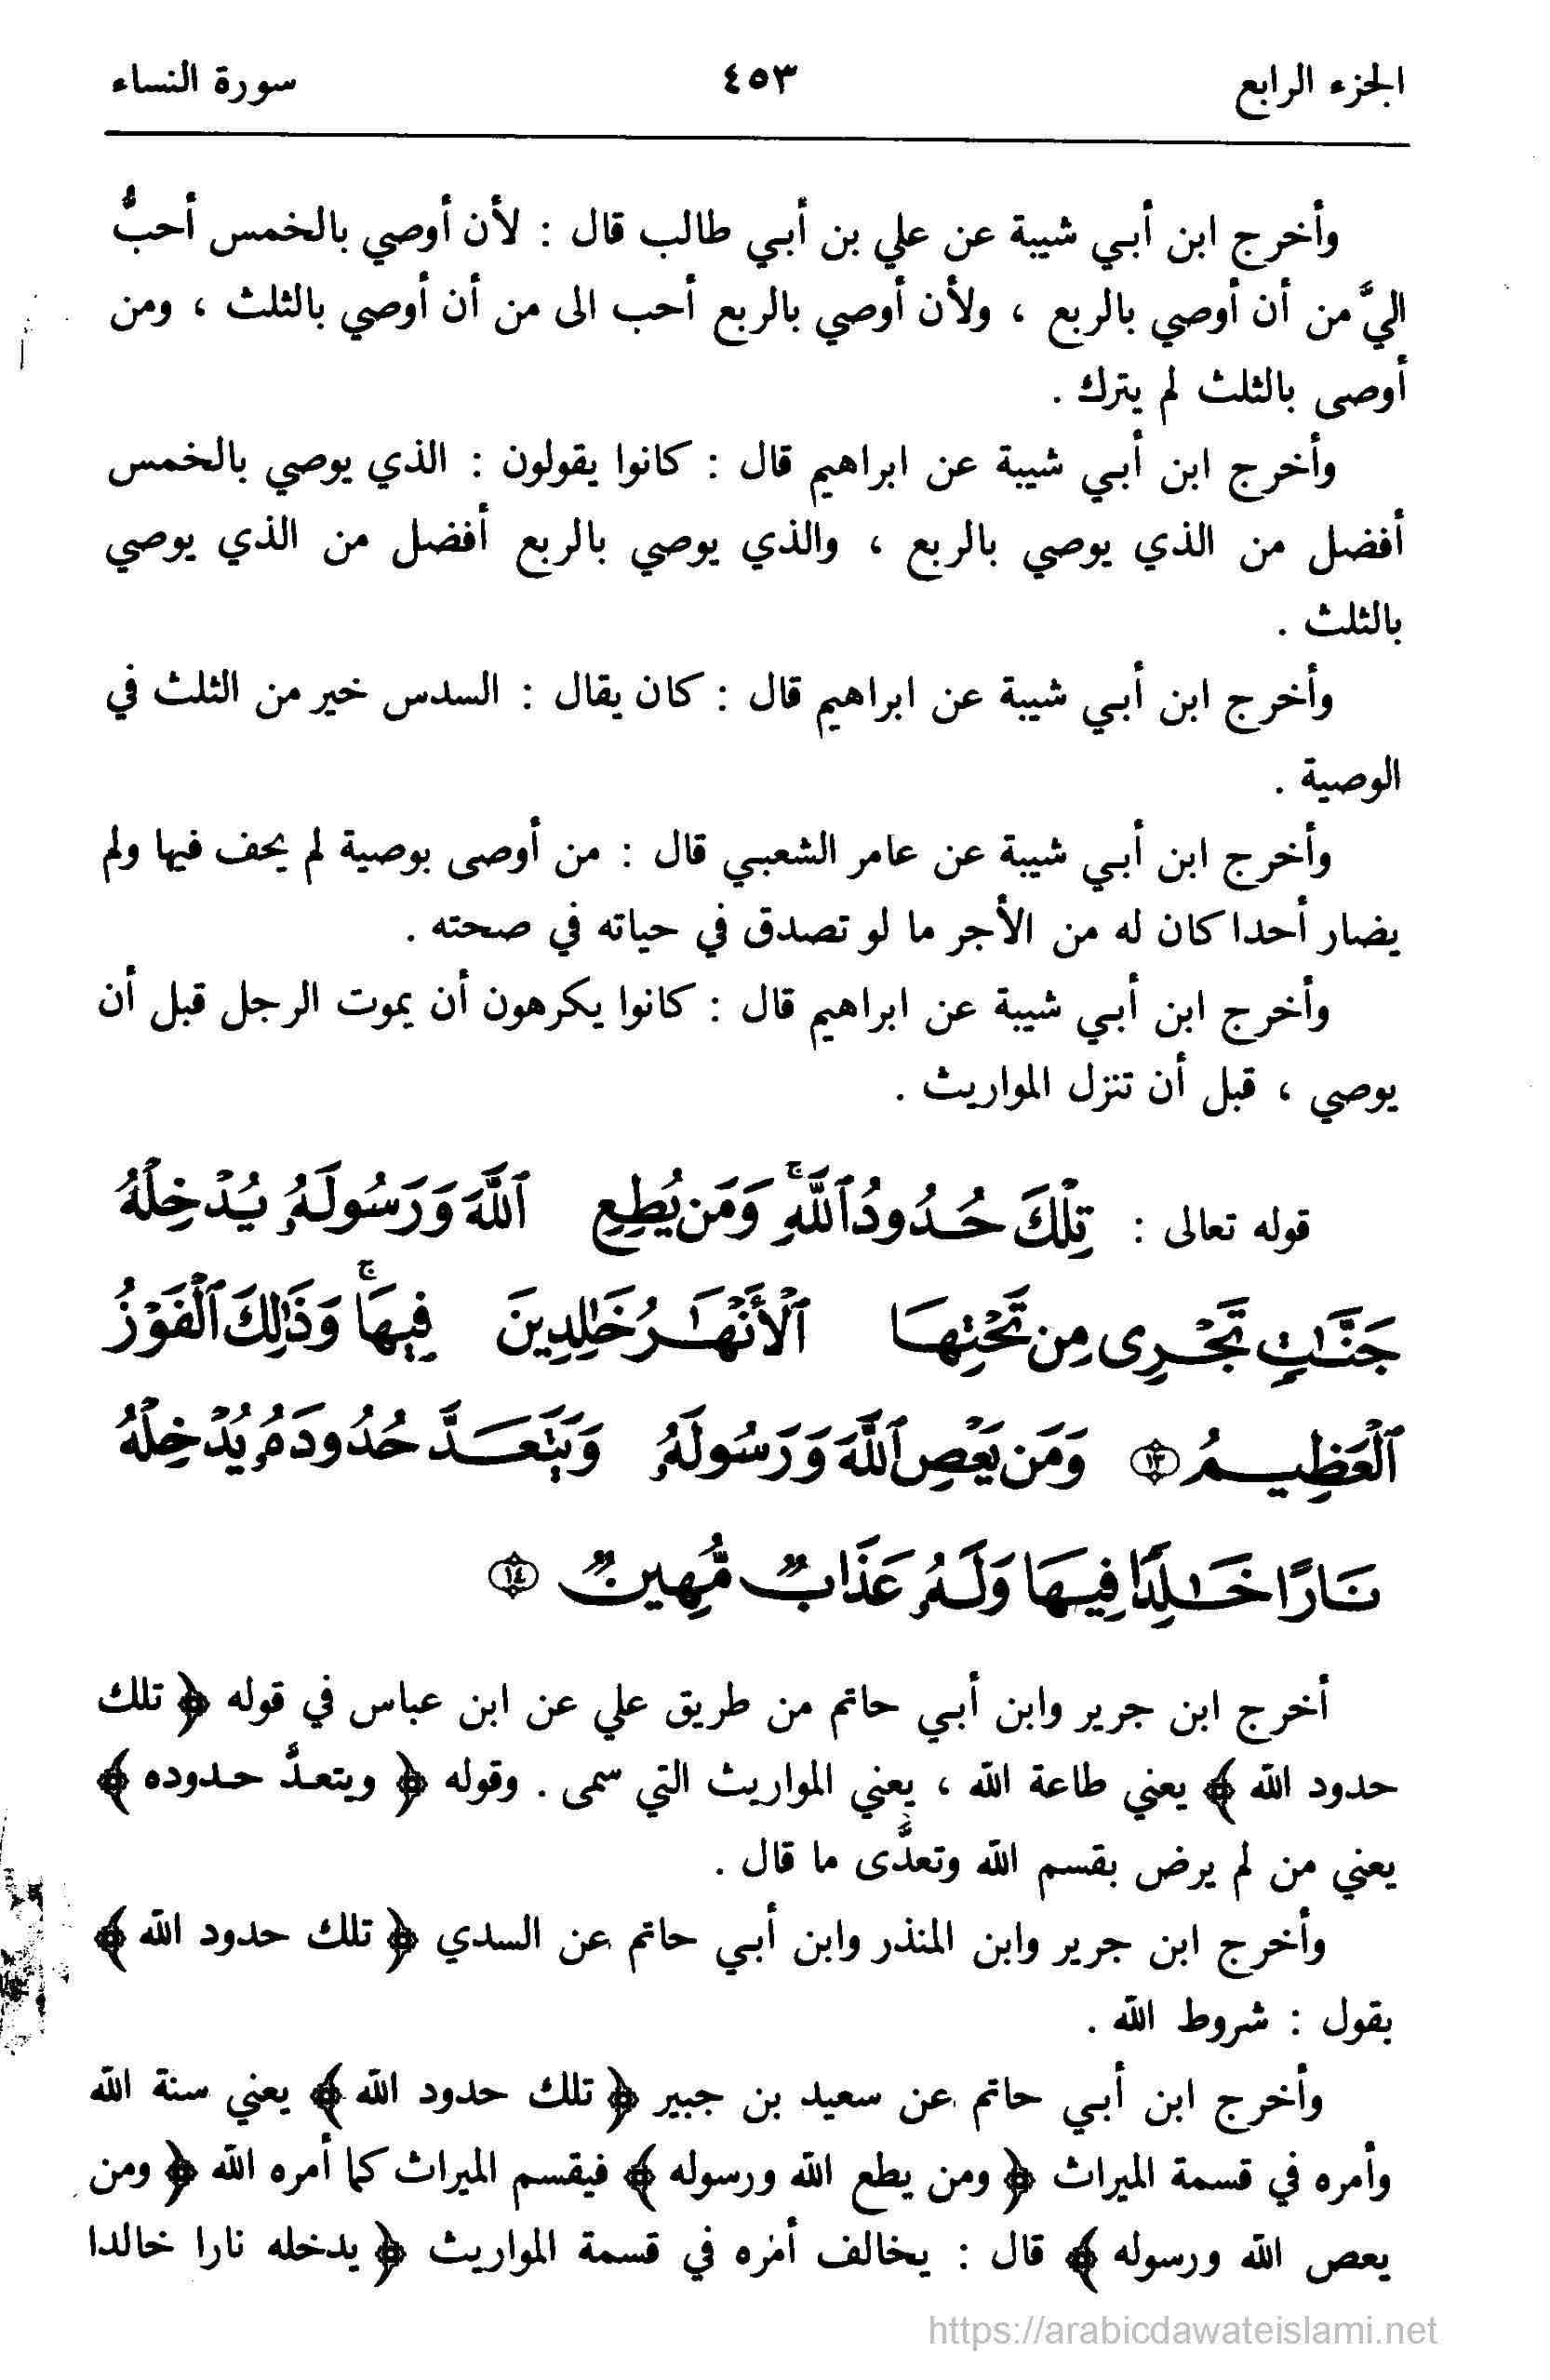 الجزء الرابع ٤٥٣ سورة النساء
وأخرج ابن أبي شيبة عن علي بن أبي طالب قال : لأن أوصي بالخمس أحبُّ
اليَّ من أن أوصي بالربع ، ولأن أوصي بالربع أحب الى من أن أوصي بالثلث ، ومن
أوصى بالثلث لم يترك .
وأخرج ابن أبي شيبة عن ابراهيم قال : كانوا يقولون : الذي يوصي بالخمس
أفضل من الذي يوصي بالربع ، والذي يوصي بالربع أفضل من الذي يوصي
بالثلث .
وأخرج ابن أبي شيبة عن ابراهيم قال : كان يقال : السدس خير من الثلث في
الوصية .
وأخرج ابن أبي شيبة عن عامر الشعبي قال : من أوصى بوصية لم يحف فيها ولم
يضار أحدا كان له من الأجر ما لو تصدق في حياته في صحته .
وأخرج ابن أبي شيبة عن ابراهيم قال : كانوا يكرهون أن يموت الرجل قبل أن
يوصي ، قبل أن تنزل المواريث .
قوله تعالى : تِلْكَ حُدُودُ ٱللَّهِۚ وَمَن يُطِعِ ٱللَّهَ وَرَسُولَهُۥ يُدْخِلْهُ
جَنَّٰتٍ تَجْرِى مِن تَحْتِهَا ٱلْأَنْهَٰرُ خَٰلِدِينَ فِيهَاۚ وَذَٰلِكَ ٱلْفَوْزُ
ٱلْعَظِيمُ ١٣ وَمَن يَعْصِ ٱللَّهَ وَرَسُولَهُۥ وَيَتَعَدَّ حُدُودَهُۥ يُدْخِلْهُ
نَارًا خَٰلِدًا فِيهَا وَلَهُۥ عَذَابٌ مُّهِينٌ ١٤
أخرج ابن جرير وابن أبي حاتم من طريق علي عن ابن عباس في قوله ﴿ تلك
حدود الله ﴾ يعني طاعة الله ، يعني المواريث التي سمى . وقوله ﴿ ويتعدَّ حدوده ﴾
يعني من لم يرض بقسم الله وتعدَّى ما قال .
وأخرج ابن جرير وابن المنذر وابن أبي حاتم عن السدي ﴿ تلك حدود الله ﴾
بقول : شروط الله .
وأخرج ابن أبي حاتم عن سعيد بن جبير ﴿ تلك حدود الله ﴾ يعني سنة الله
وأمره في قسمة الميراث ﴿ ومن يطع الله ورسوله ﴾ فيقسم الميراث كما أمره الله ﴿ ومن
يعص الله ورسوله ﴾ قال : يخالف أمره في قسمة المواريث ﴿ يدخله نارا خالدا
https://arabicdawateislami.net